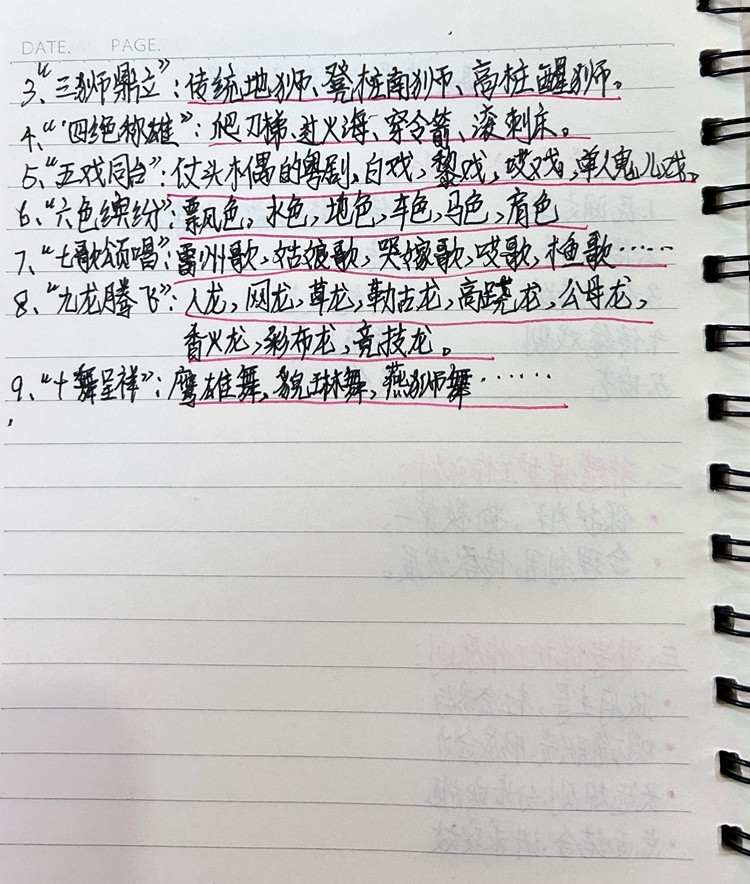 DATE. PAGE.
3、“三狮鼎立”：传统地狮、凳桩南狮、高桩醒狮。
4、“四绝称雄”：爬刀梯、过火海、穿令箭、滚刺床。
5、“五戏同台”：仗头木偶的粤剧，白戏，黎戏，哎戏，单人鬼儿戏。
6、“六色缤纷”：飘色，水色，地色，车色，马色，肩色
7、“七歌颂唱”：雷州歌，姑娘歌，哭嫁歌，哎歌，木鱼歌……
8、“九龙腾飞”：人龙，网龙，草龙，勒古龙，高跷龙，公母龙，
香火龙，彩布龙，竞技龙。
9、“十舞呈祥”：鹰雄舞，貔琳舞，燕狮舞……